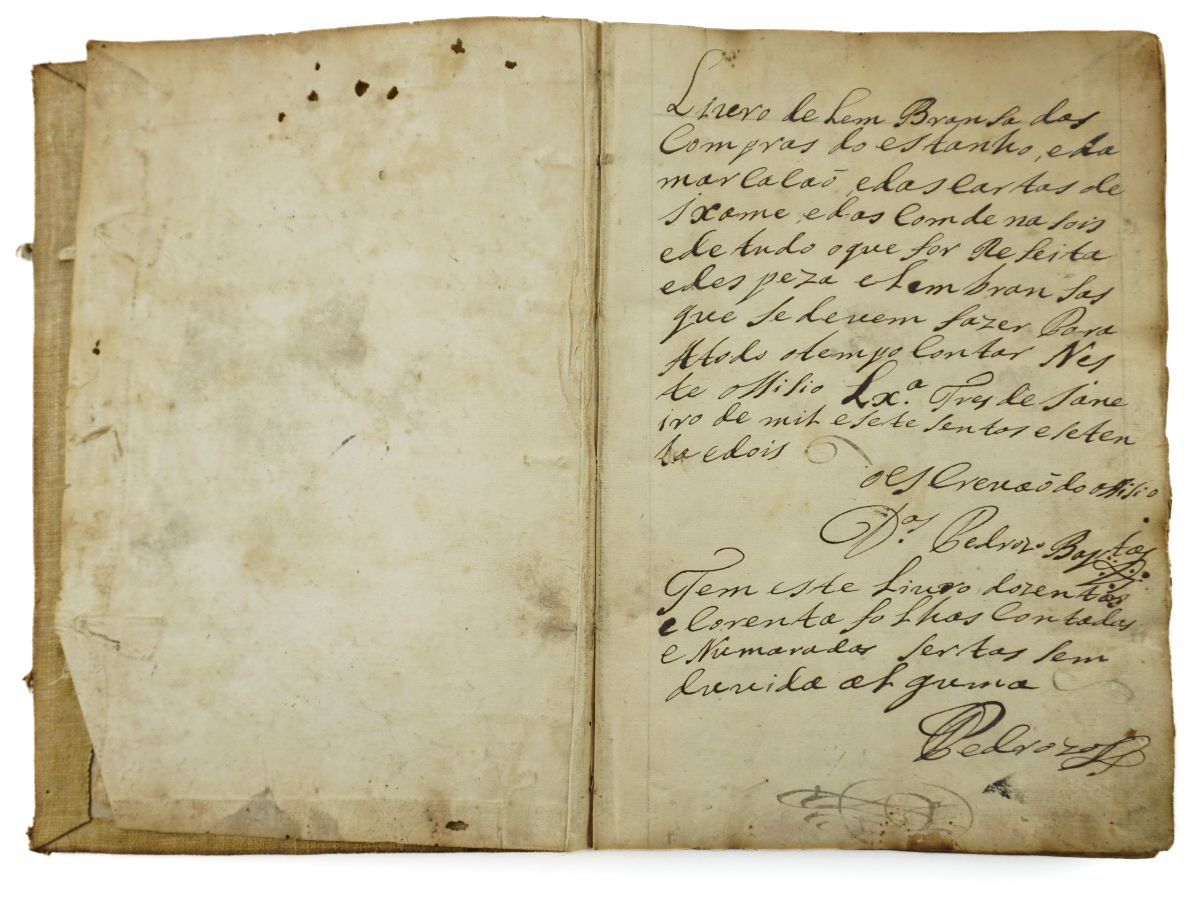 Liuro de Lem Bransa das
Compras do estanho, e da
marcacaõ, e das Cartas de
Ixame, e das Comdenasois
e de tudo o que for Reseita
e des peza e Lembransas
que se deuem fazer Para
A todo o tempo Contar Nes
te offisio Lxª. Tres de Jane
iro de mil e sete sentos e seten
ta e dois
o es Creuaõ do offisio
D.ºˢ Pedrozo Bap.tᵃ
Tem este Liuro dozentas
e Corenta folhas Contadas
e Numaradas sertas sem
duuida alguma
Pedrozo